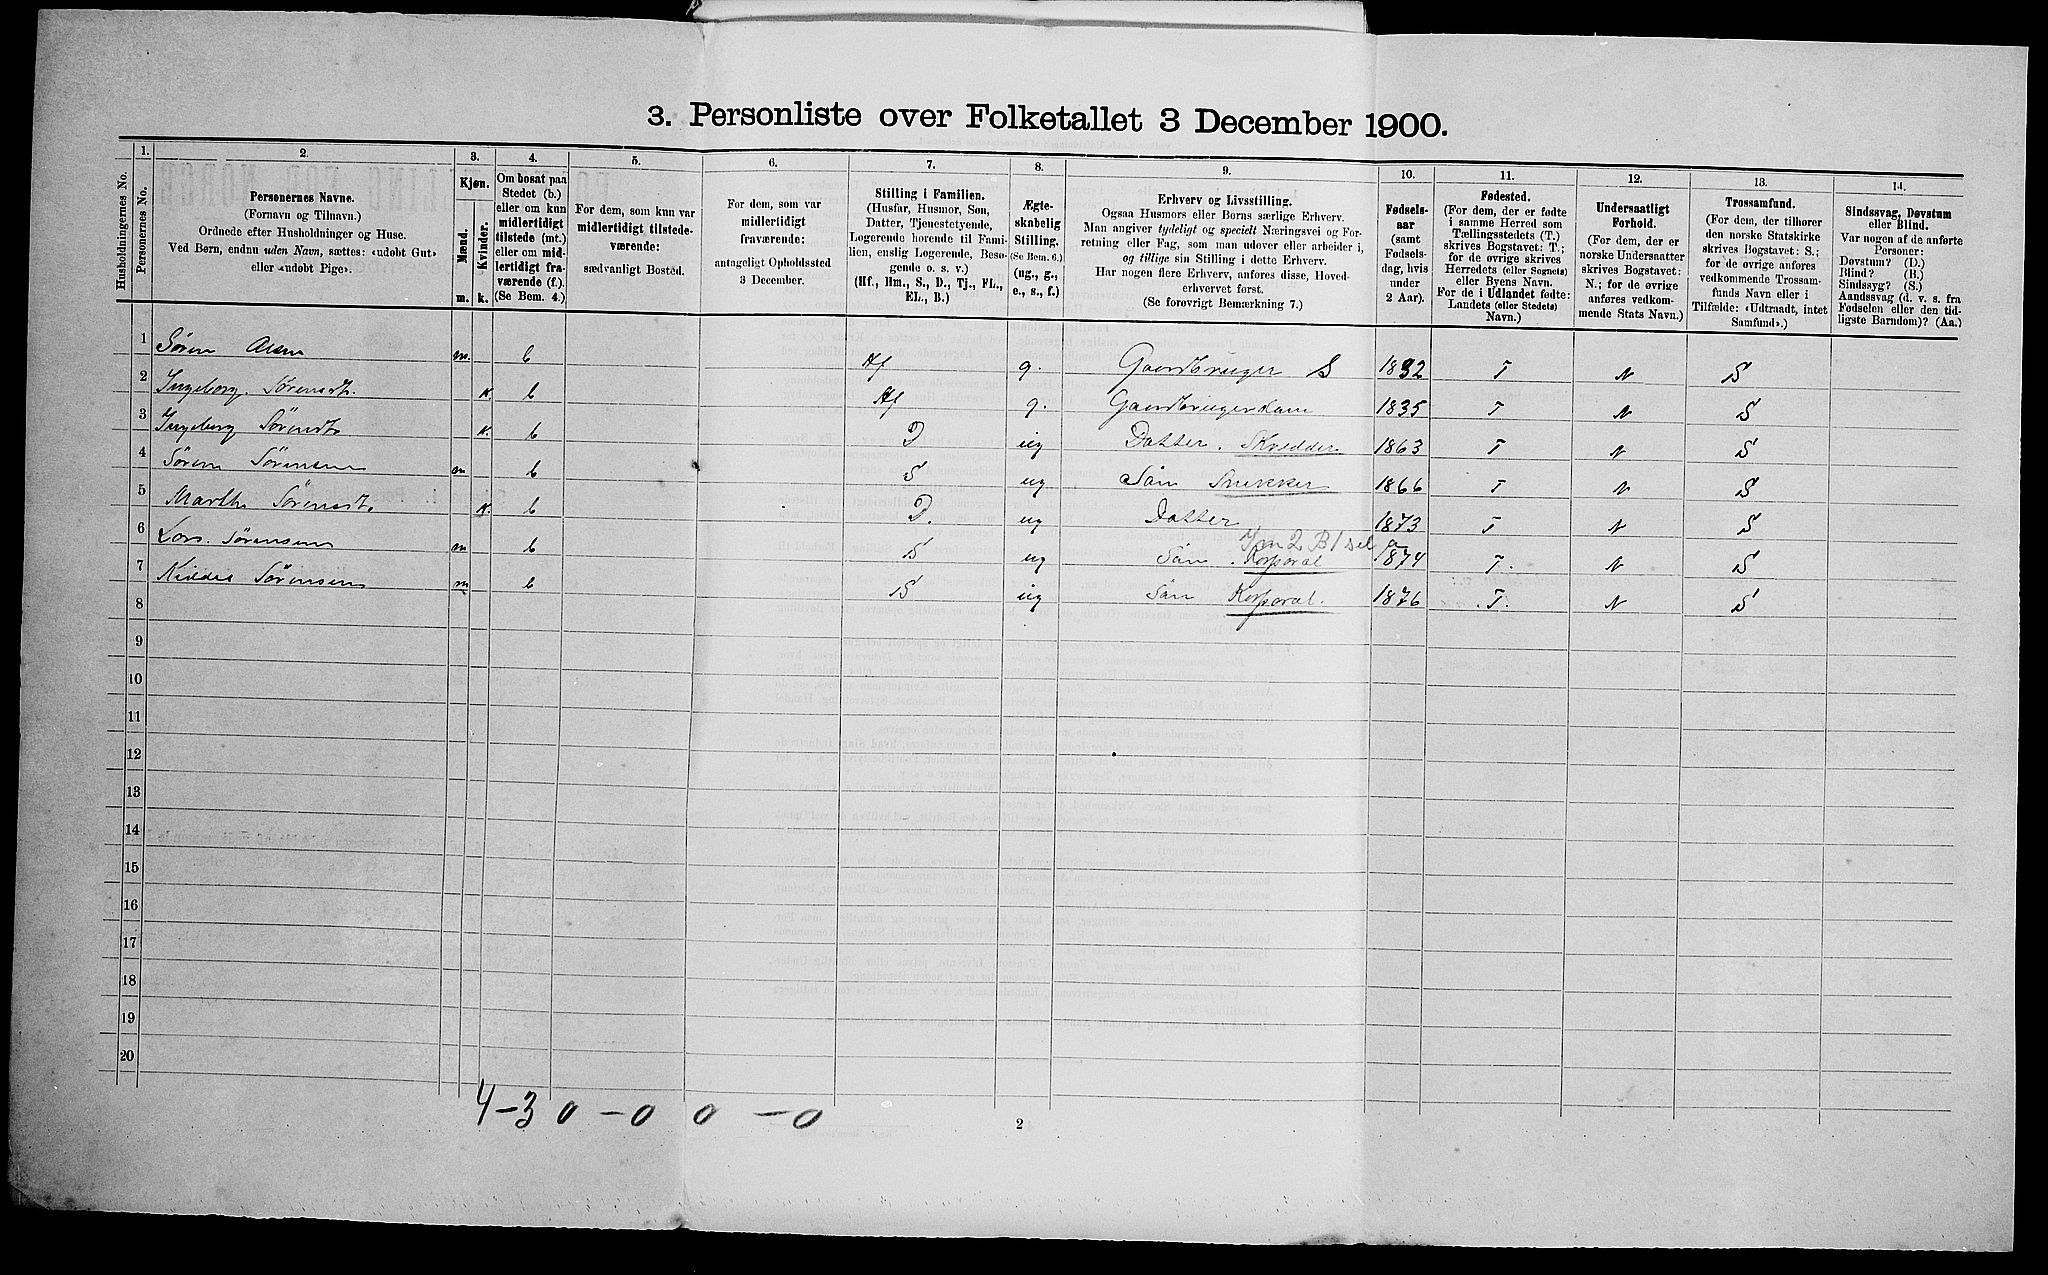 3. Personliste over Folketallet 3 December 1900.
Husholdningernes No.
1.
Personernes No.
2.
Personernes Navne.
(Fornavn og Tilnavn.)
Ordnede efter Husholdninger og Huse.
Ved Børn, endnu uden Navn, sættes: «udøbt Gut»
eller «udøbt Pige».
3.
Kjøn.
Mænd.
Kvinder.
m.
k.
4.
Om bosat paa
Stedet (b.)
eller om kun
midlertidigt
tilstede (mt.)
eller om mid-
lertidigt fra-
værende (f.).
(Se Bem. 4.)
5.
For dem, som kun var
midlertidigt tilstede-
værende:
sædvanligt Bosted.
6.
For dem, som var
midlertidigt
fraværende:
antageligt Opholdssted
3 December.
7.
Stilling i Familien.
(Husfar, Husmor, Søn,
Datter, Tjenestetyende,
Logerende hørende til Fami-
lien, enslig Logerende, Besø-
gende o. s. v.)
(Hf., Hm., S., D., Tj., FL.,
EL., B.)
8.
Ægte-
skabelig
Stilling.
(Se Bem. 6.)
(ug., g.,
e., s., f.)
9.
Erhverv og Livsstilling.
Ogsaa Husmors eller Børns særlige Erhverv.
Man angiver tydeligt og specielt Næringsvei og For-
retning eller Fag, som man udøver eller arbeider i,
og tillige sin Stilling i dette Erhverv.
Har nogen flere Erhverv, anføres disse, Hoved-
erhvervet først.
(Se forøvrigt Bemærkning 7.)
10.
Fødsels-
aar
(samt
Fødsels-
dag, hvis
under
2 Aar).
11.
Fødested.
(For dem, der er fødte
i samme Herred som
Tællingsstedets (T.)
skrives Bogstavet: T.;
for de øvrige skrives
Herredets (eller Sognets)
eller Byens Navn.
For de i Udlandet fødte:
Landets (eller Stedets)
Navn.)
12.
Undersaatligt
Forhold.
(For dem, der er
norske Undersaatter
skrives Bogstavet:
N.; for de øvrige
anføres vedkom-
mende Stats Navn.)
13.
Trossamfund.
(For dem, der tilhører
den norske Statskirke
skrives Bogstavet: S.;
for de øvrige anføres
vedkommende Trossam-
funds Navn eller i
Tilfælde: «Udtraadt, intet
Samfund».)
14.
Sindssvag, Døvstum
eller Blind.
Var nogen af de anførte
Personer:
Døvstum? (D.)
Blind? (B.)
Sindssyg? (S.)
Aandssvag (d. v. s. fra
Fødselen eller den tid-
ligste Barndom)? (Aa.)
1 Søren Olsen m. b Hf g. Gaardbruger S 1832 T N S
2 Ingeborg Sørensdt. k. b Hf g. Gaardbrugerkam 1835 T N S
3 Ingeborg Sørensdt. k. b D ug Datter. Skredder 1863 T N S
4 Søren Sørensen m b S ug Søn Snekker 1866 T N S
5 Marthe Sørensdt. k. b D. ug Datter 1873 T N S
6 Lars Sørensen m b S ug Søn. Korporal 1874 T. N S
7 Sørensen m b S ug Søn Korporal. 1876 T. N S
8
9
10
11
12
13
14
15
16
17
18
19
20
4-3 0-0 0-0
2